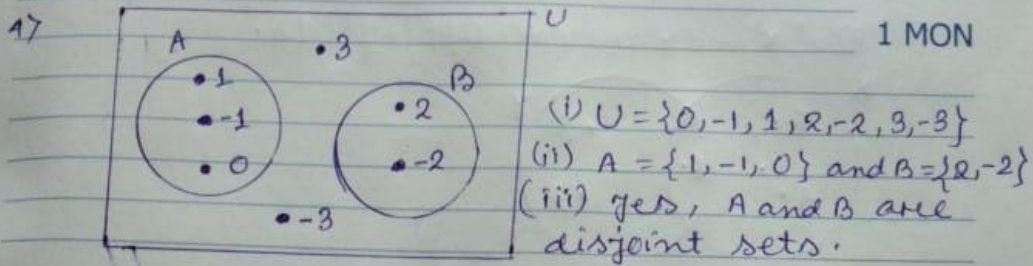 1) U
1 MON
A
3
1
B
-1
2
(i) U = {0, -1, 1, 2, -2, 3, -3}
0
-2
(ii) A = {1, -1, 0} and B = {2, -2}
-3
(iii) yes, A and B are
disjoint sets.